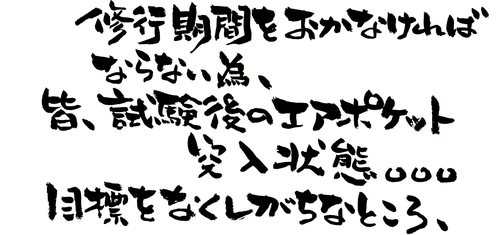 修行期間をおかなければ
ならない為、
皆、試験後のエアポケット
突入状態。。。
目標をなくしがちなところ、